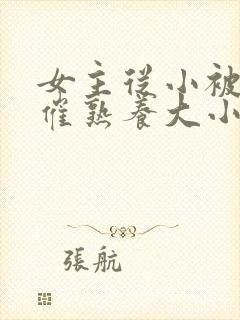 女主從小被
催熟養大小
張航